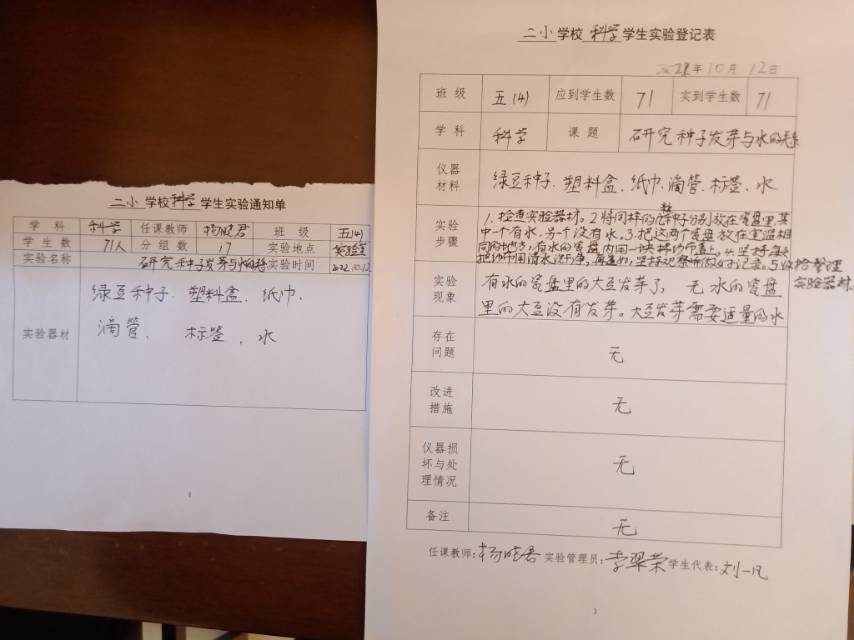 二小学校科学学生实验通知单
学科 科学 任课教师 杨晓君 班级 五(4)
学生数 71人 分组数 17 实验地点 实验室
实验名称 研究种子发芽与水的关系 实验时间 2022.10.12
实验器材
绿豆种子、塑料盒、纸巾、
滴管、 标签、水
1
二小学校科学学生实验登记表
2022年10月12日
班级 五(4) 应到学生数 71 实到学生数 71
学科 科学 课题 研究种子发芽与水的关系
仪器
材料
绿豆种子、塑料盒、纸巾、滴管、标签、水
实验
步骤
1、检查实验器材。2、将同样的种子分别放在瓷盘里其
中一个有水,另一个没有水。3、把这两个瓷盘放在室温相
同的地方,有水的瓷盘内用一块棉纱布盖上。4、坚持每天
把纱布用清水
5、
整理
实验器材
实验
现象
有水的瓷盘里的大豆发芽了,无水的瓷盘
里的大豆没有发芽。大豆发芽需要适量的水
存在
问题
无
改进
措施
无
仪器损
坏与处
理情况
无
备注
无
任课教师:杨晓君 实验管理员:李翠荣 学生代表:刘一凡